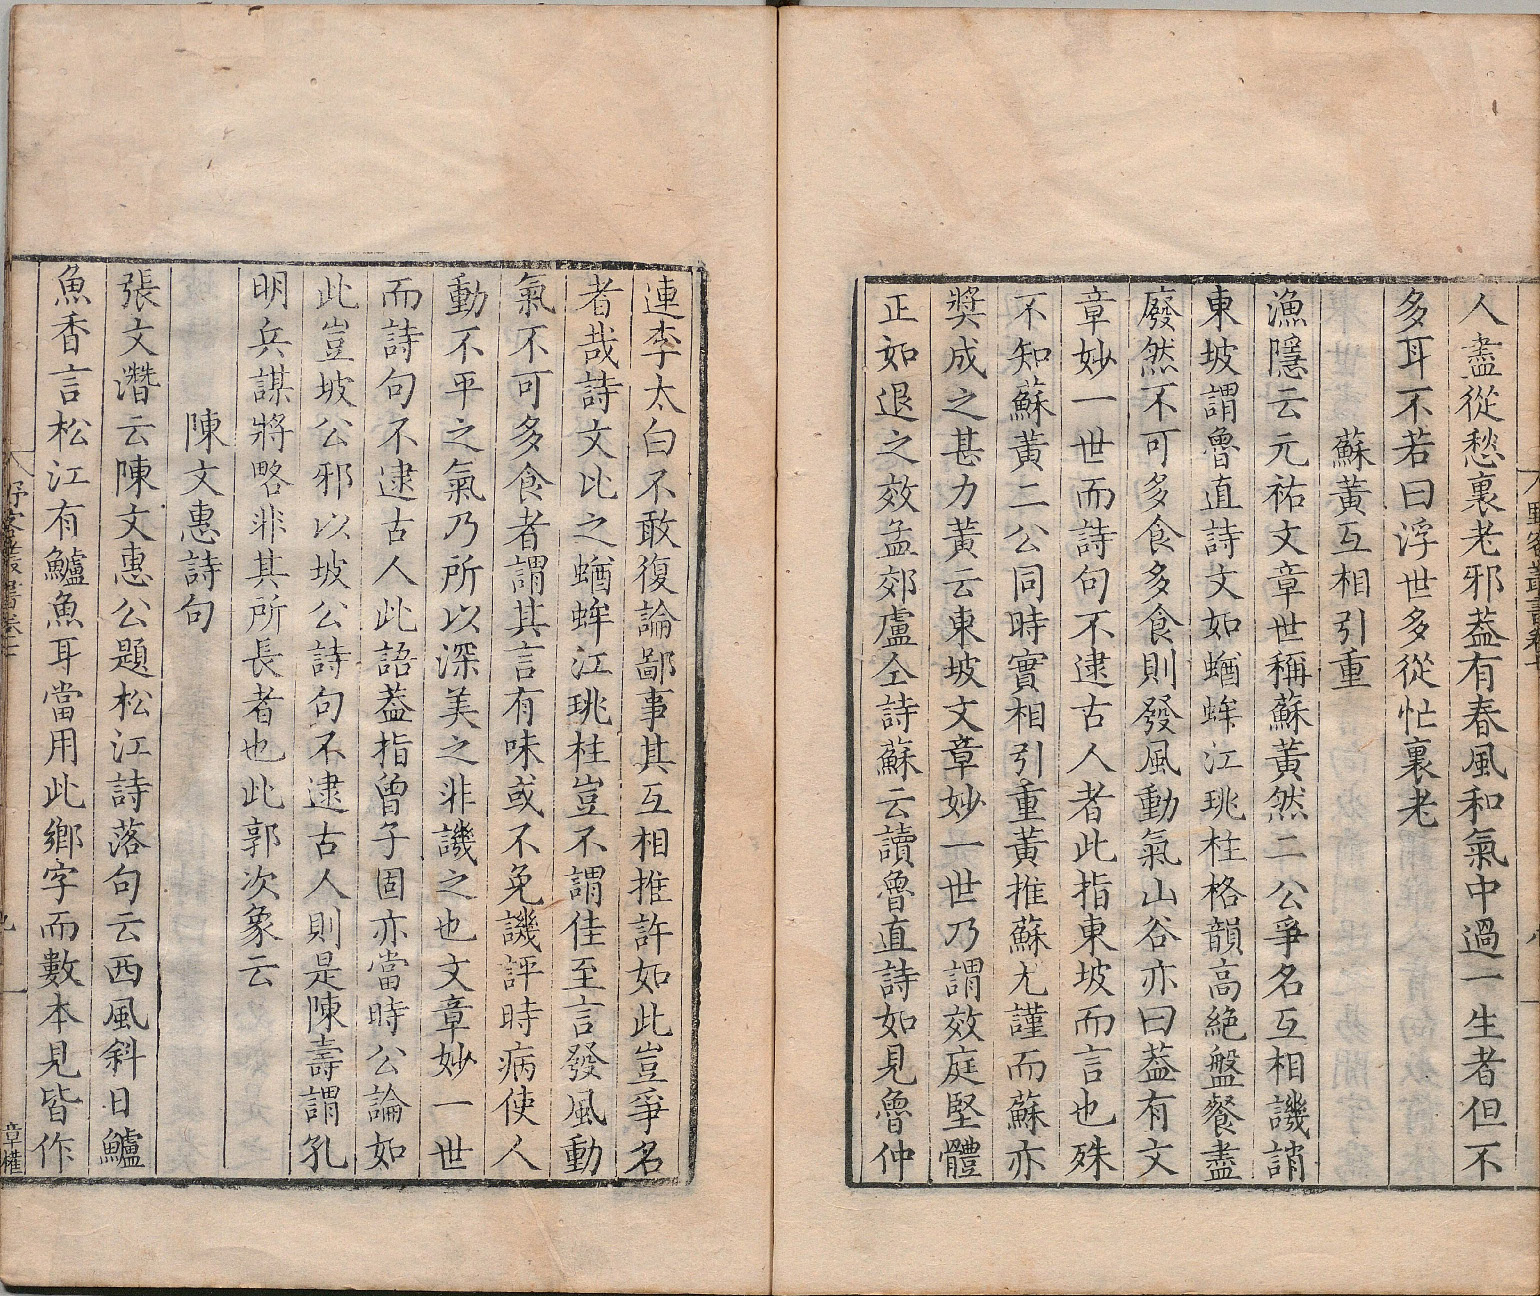 人盡從愁裏老邪葢有春風和氣中過一生者但不
多耳不若曰浮世多從忙裏老
蘇黃互相引重
漁隱云元祐文章世稱蘇黃然二公爭名互相譏誚
東坡謂魯直詩文如蝤蛑江珧柱格韻高絕盤餐盡
廢然不可多食多食則發風動氣山谷亦曰葢有文
章妙一世而詩句不逮古人者此指東坡而言也殊
不知蘇黃二公同時實相引重黃推蘇尤謹而蘇亦
奬成之甚力黃云東坡文章妙一世乃謂效庭堅體
正如退之效孟郊盧仝詩蘇云讀魯直詩如見魯仲
連李太白不敢復論鄙事其互相推許如此豈爭名
者哉詩文比之蝤蛑江珧柱豈不謂佳至言發風動
氣不可多食者謂其言有味或不免譏評時病使人
動不平之氣乃所以深美之非譏之也文章妙一世
而詩句不逮古人此語葢指曾子固亦當時公論如
此豈坡公邪以坡公詩句不逮古人則是陳壽謂孔
明兵謀將略非其所長者也此郭次象云
陳文惠詩句
張文潛云陳文惠公題松江詩落句云西風斜日鱸
魚香言松江有鱸魚耳當用此鄉字而數本見皆作
章權